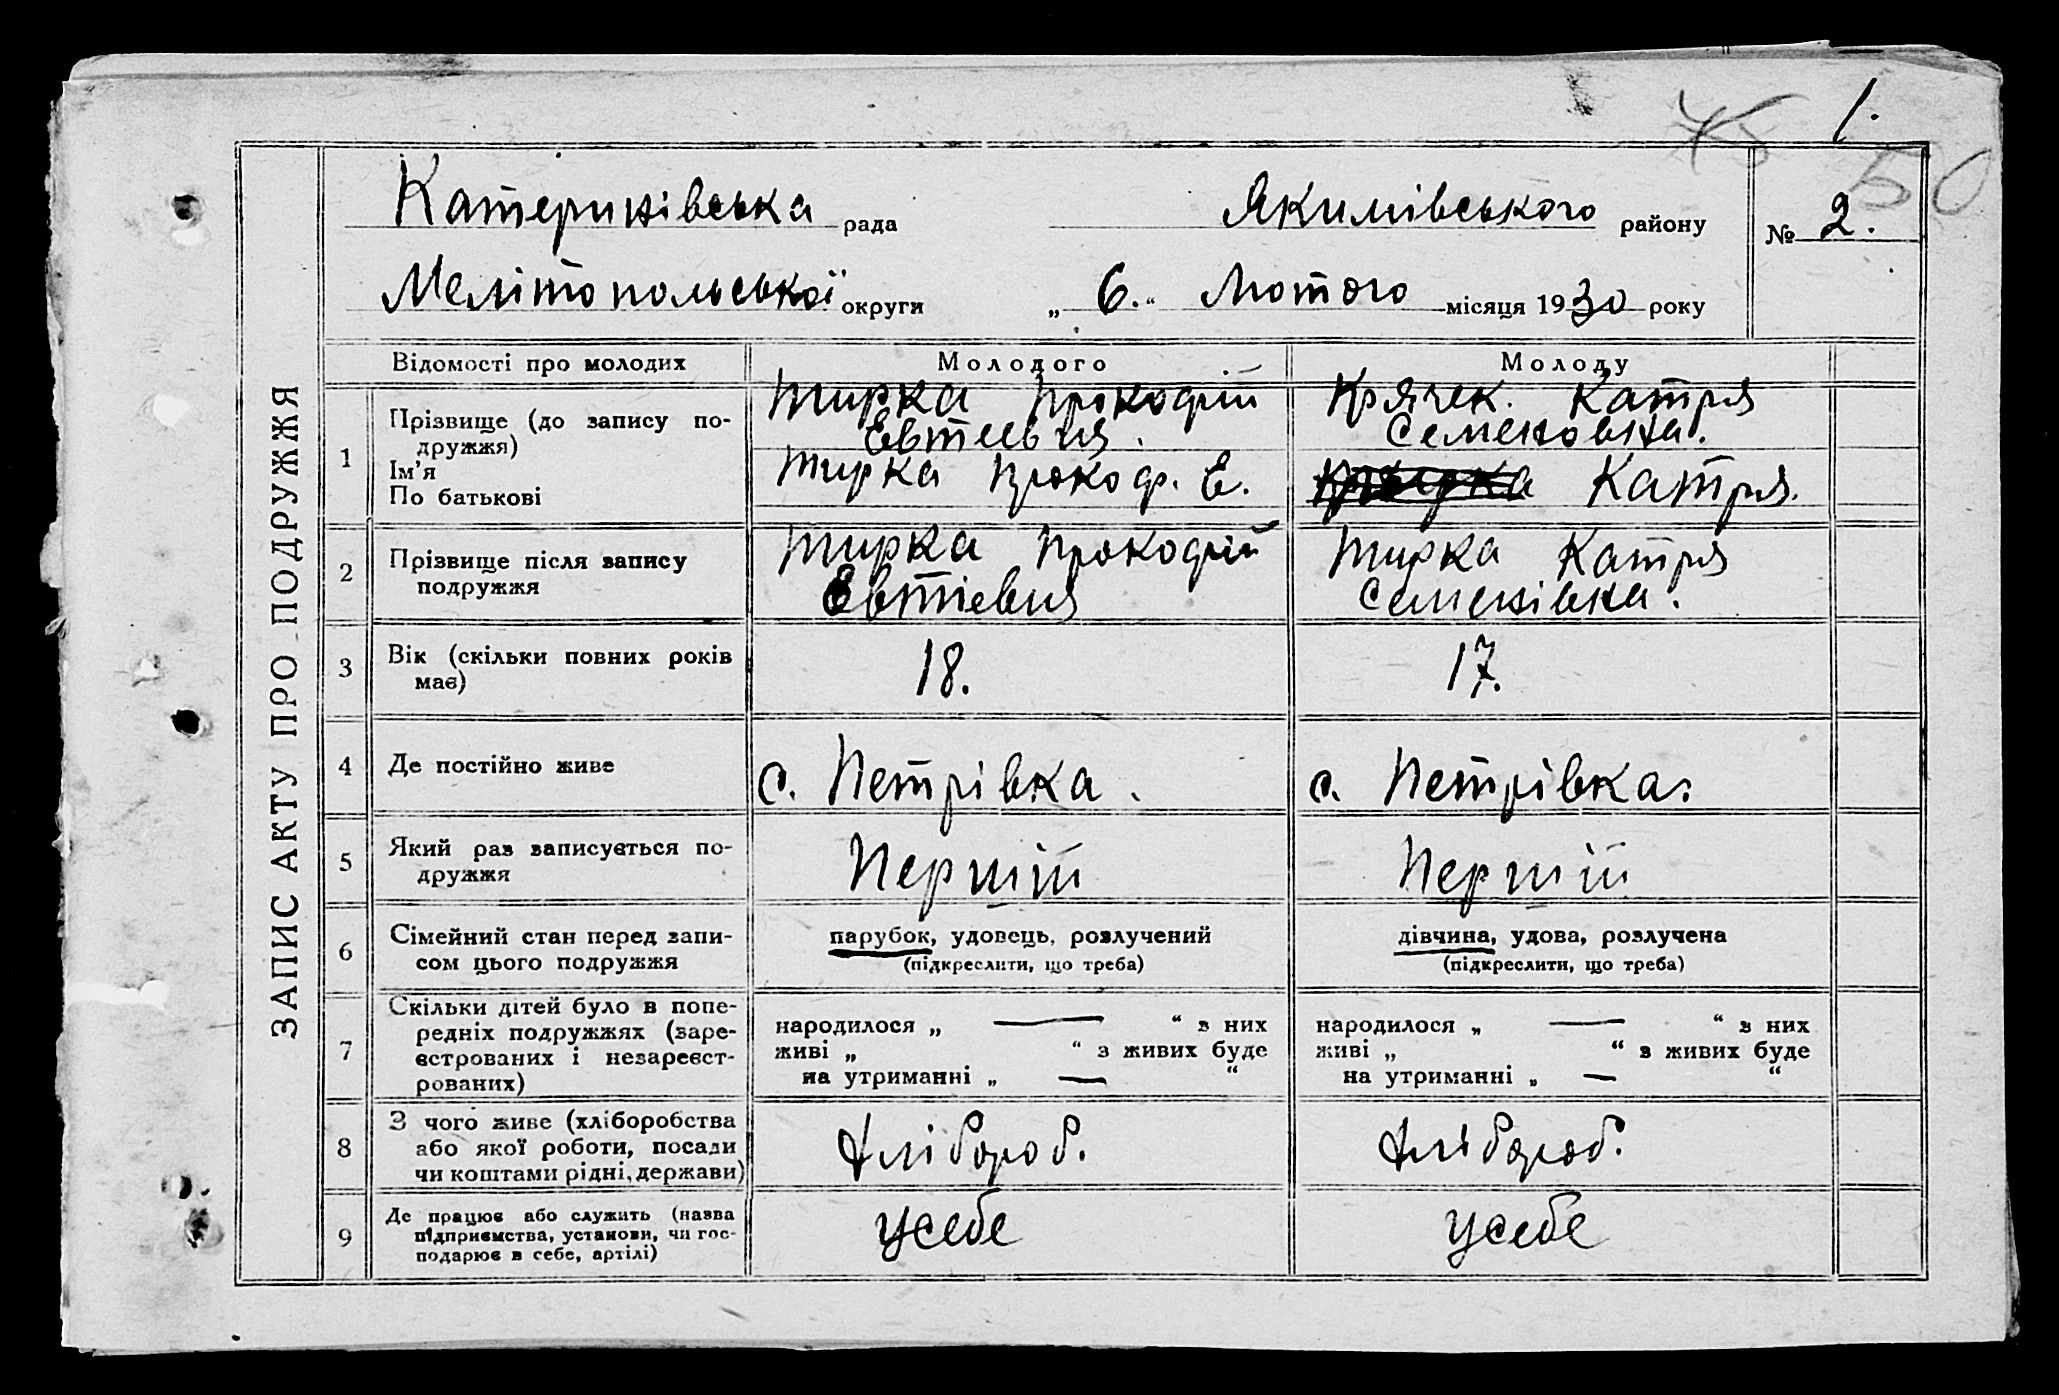 1.
50
ЗАПИС АКТУ ПРО ПОДРУЖЖЯ
Катеринівська рада Якимівського району № 2.
Мелітопольської округи „ 6. “ Лютого місяця 1930 року
Відомості про молодих Молодого Молоду
1
Прізвище (до запису по-
дружжя)
Ім’я
По батькові
Тирка Прокофій
Евтиевия.
Тирка Прокоф. Е.
Крячек. Катря
Семеновна.
Катря.
2
Прізвище після запису
подружжя
Тирка Прокофій
Евтієвия
Тирка Катря
Семенівна.
3
Вік (скільки повних років
має)
18.
17.
4
Де постійно живе
с. Петрівка.
с. Петрівка.
5
Який раз записується по-
дружжя
Перший
Перший
6
Сімейний стан перед запи-
сом цього подружжя
парубок, удовець, розлучений
(підкреслити, що треба)
дівчина, удова, розлучена
(підкреслити, що треба)
7
Скільки дітей було в попе-
редніх подружжях (заре-
єстрованих і незареєст-
рованих)
народилося „ — “ з них
живі „ “ з живих буде
на утриманні „ — “
народилося „ — “ з них
живі „ “ з живих буде
на утриманні „ — “
8
З чого живе (хліборобства
або якої роботи, посади
чи коштами рідні, держави)
Хлібороб.
Хлібороб.
9
Де працює або служить (назва
підприємства, установи, чи гос-
подарює в себе, артілі)
усебе
усебе